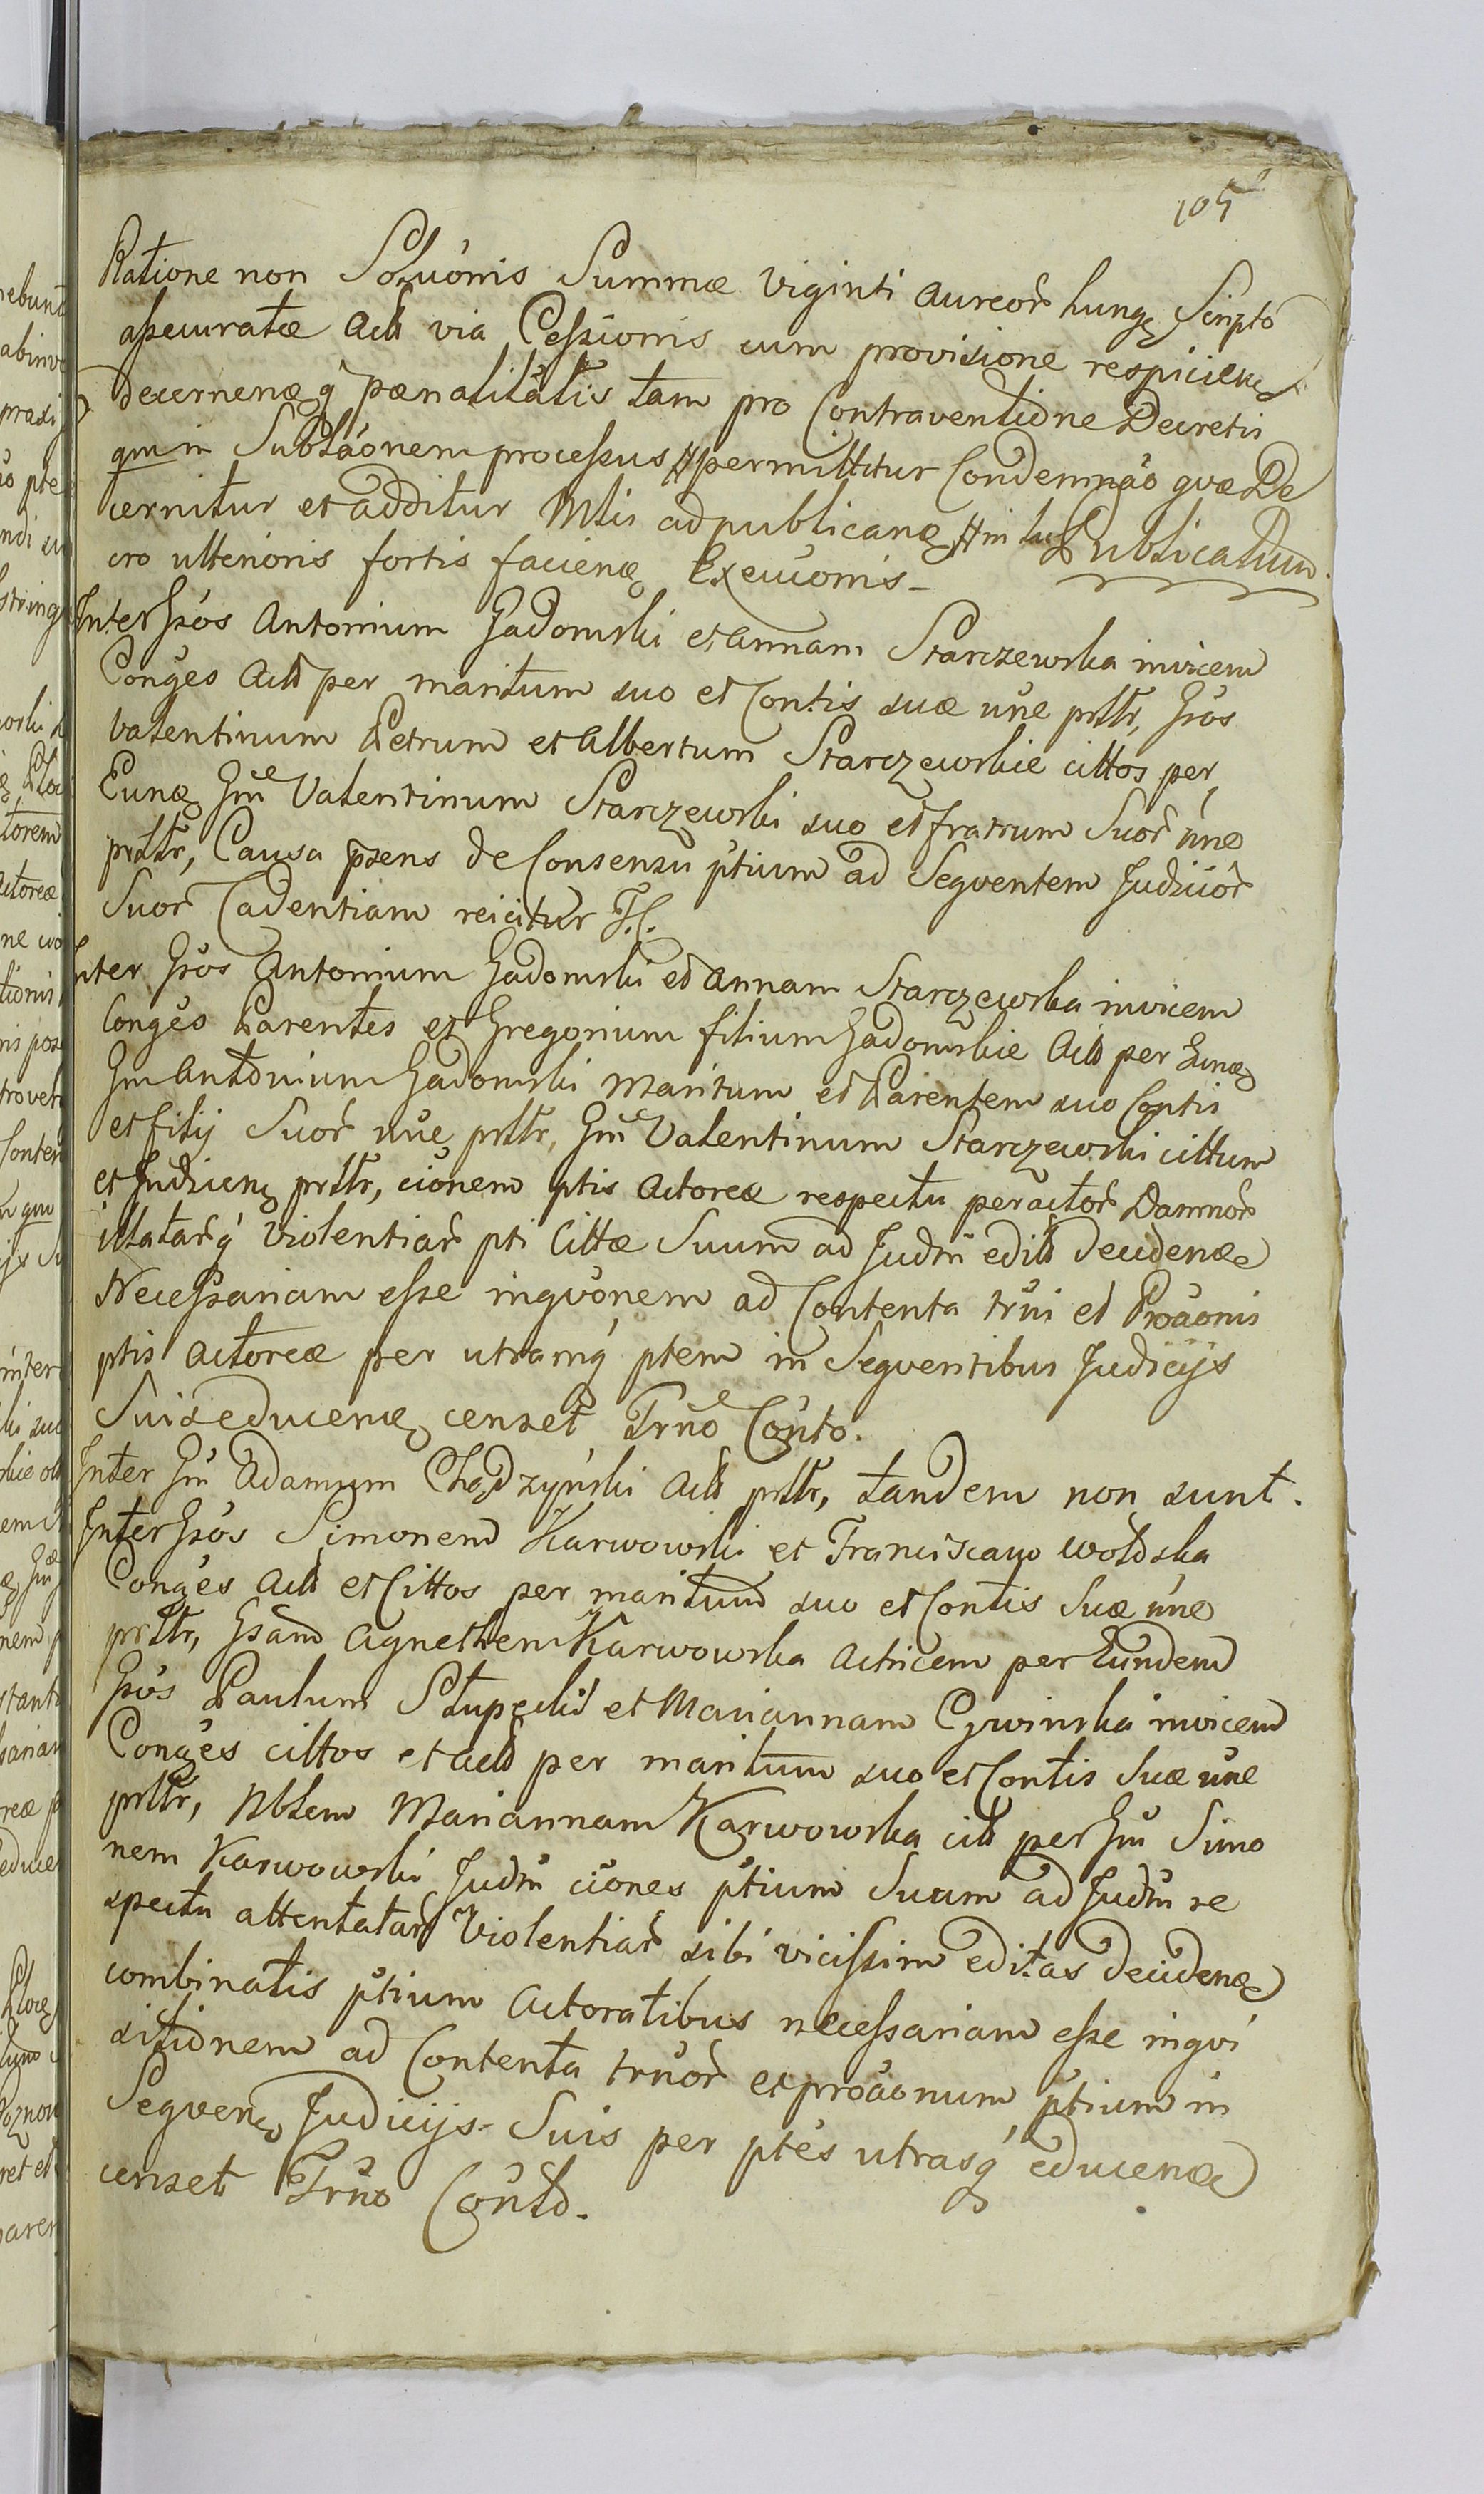 105
Ratione non Soluónis Summæ Viginti aureor hung Scripto
assecuratæ Actl via Cessionis cum provisione respiciend
decernend q pænalitatis tam pro Contraventione Decretis
qm in Sublaonem processus # permittitur Condemnao quæ De
cernitur et additur Mtis ad publicand # in lucro Publicatum
cro ulterioris fortis faciend Exeuonis –
Inter Gsos Antonium Gadomski et Annam Starczewska invicem
Conges Actl per maritum suo et Contis suæ nne prttr, Gsos
Valentinum Petrum et Albertum Starczewskie cittos per
Eund Gm Valentinum Starczewski suo et fratrum Suor nne
prttr, Causa pzens de Consensu ptium ad Seqventem Judicior
Suor Cadentiam reicitur T.C.
Inter Gsos Antonium Gadomski et Annam Starczewska invicem
Conges Parentes et Gregorium filium Gadomskie Actl per Eund
Gm Antonium Gadomski Maritum et Parentem suo Contis
et filij Suor nne prttr, Gm Valentinum Starczewski cittum
et Judiciend prttr, cionem ptis Actoreæ respectu peractor Damnor
illatarq Violentiar pti Cittæ Suum ad Judm edit decidend
Necessariam esse inqvonem ad Contenta trni et Proaonis
ptis Actoreæ per utramq ptem in Seqventibus Judicijs
Suis educend censet Trno Conto.
Inter Gm Adamum Chądzyński Actl prttr, tandem non sunt.
Inter Gsos Simonem Karwowski et Franciscam Wolska
Conges Actl et Cittos per maritum suo et Contis Suæ nne
prttr, Gsam Agnethem Karwowska Actricem per Eundem
Gsos Paulum Słupecki et Mariannam Cywinska invicem
Conges cittos et Actl per maritum suo et Contis Suæ nne
prttr, Nblem Mariannam Karwowska citl per Gm Simo
nem Karwowski Judm ciones ptium Suum ad Judm re
spectu attentatar Violentiar sibi vicissim editas decidend
combinatis ptium Actoratibus necessariam esse inqvi
sitionem ad Contenta trnor et proaonum ptium in
Seqvend Judicijs Suis per ptes utrasq educend
censet Trno Conto.